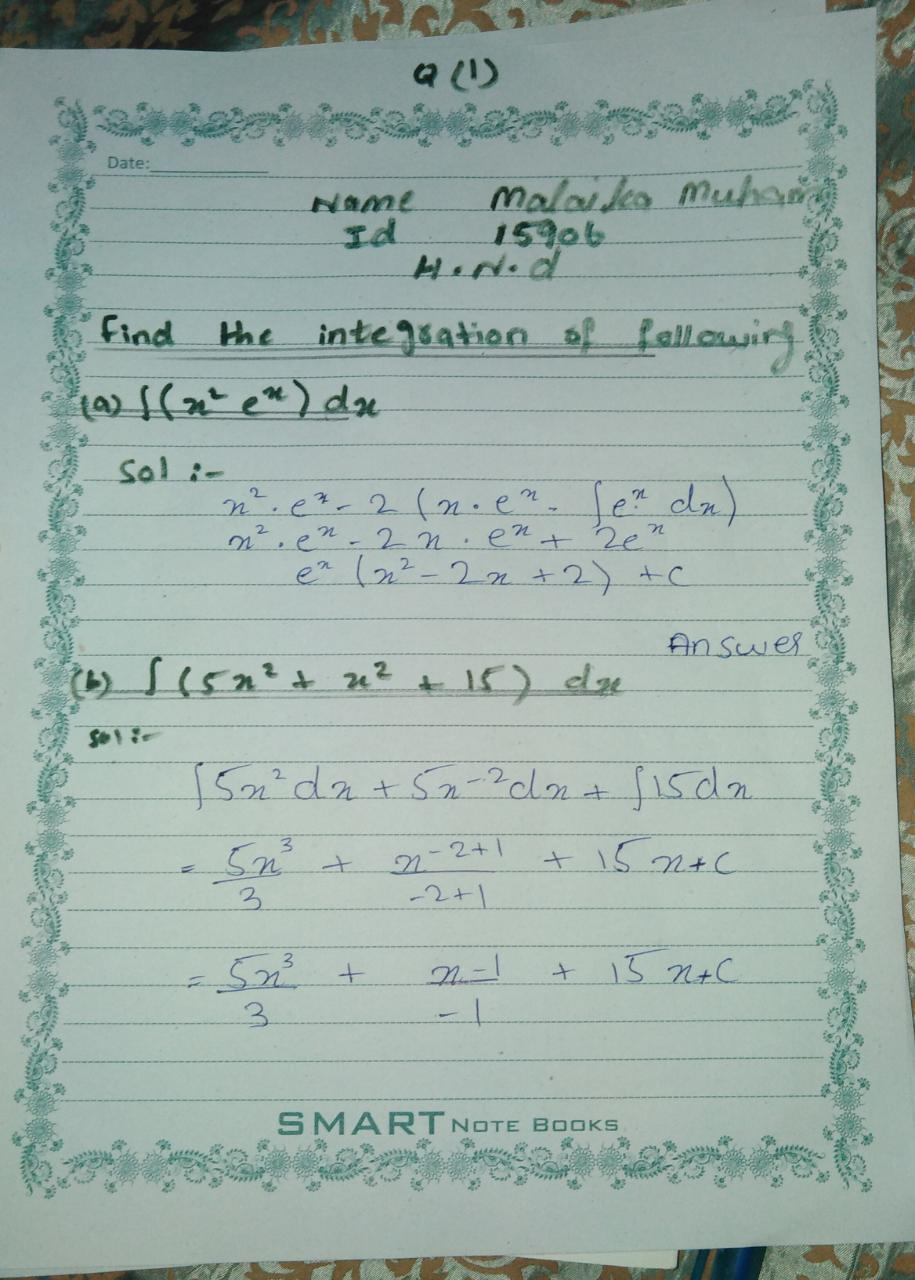 Q (1)
Date:
Name Malaika Muham
Id 15906
H.N.d
Find the integration of following
(a) ∫(x² eˣ) dx
Sol :-
x² . eˣ - 2 (x . eˣ - ∫eˣ dx)
x² . eˣ - 2x . eˣ + 2eˣ
eˣ (x² - 2x + 2) + c
Answer
(b) ∫ (5x² + x² + 15) dx
Sol :-
∫5x² dx + 5x-² dx + ∫15dx
= 5x³/3 + x⁻²⁺¹/-2+1 + 15x+c
= 5x³/3 + x-1/-1 + 15x+c
SMART NOTE BOOKS